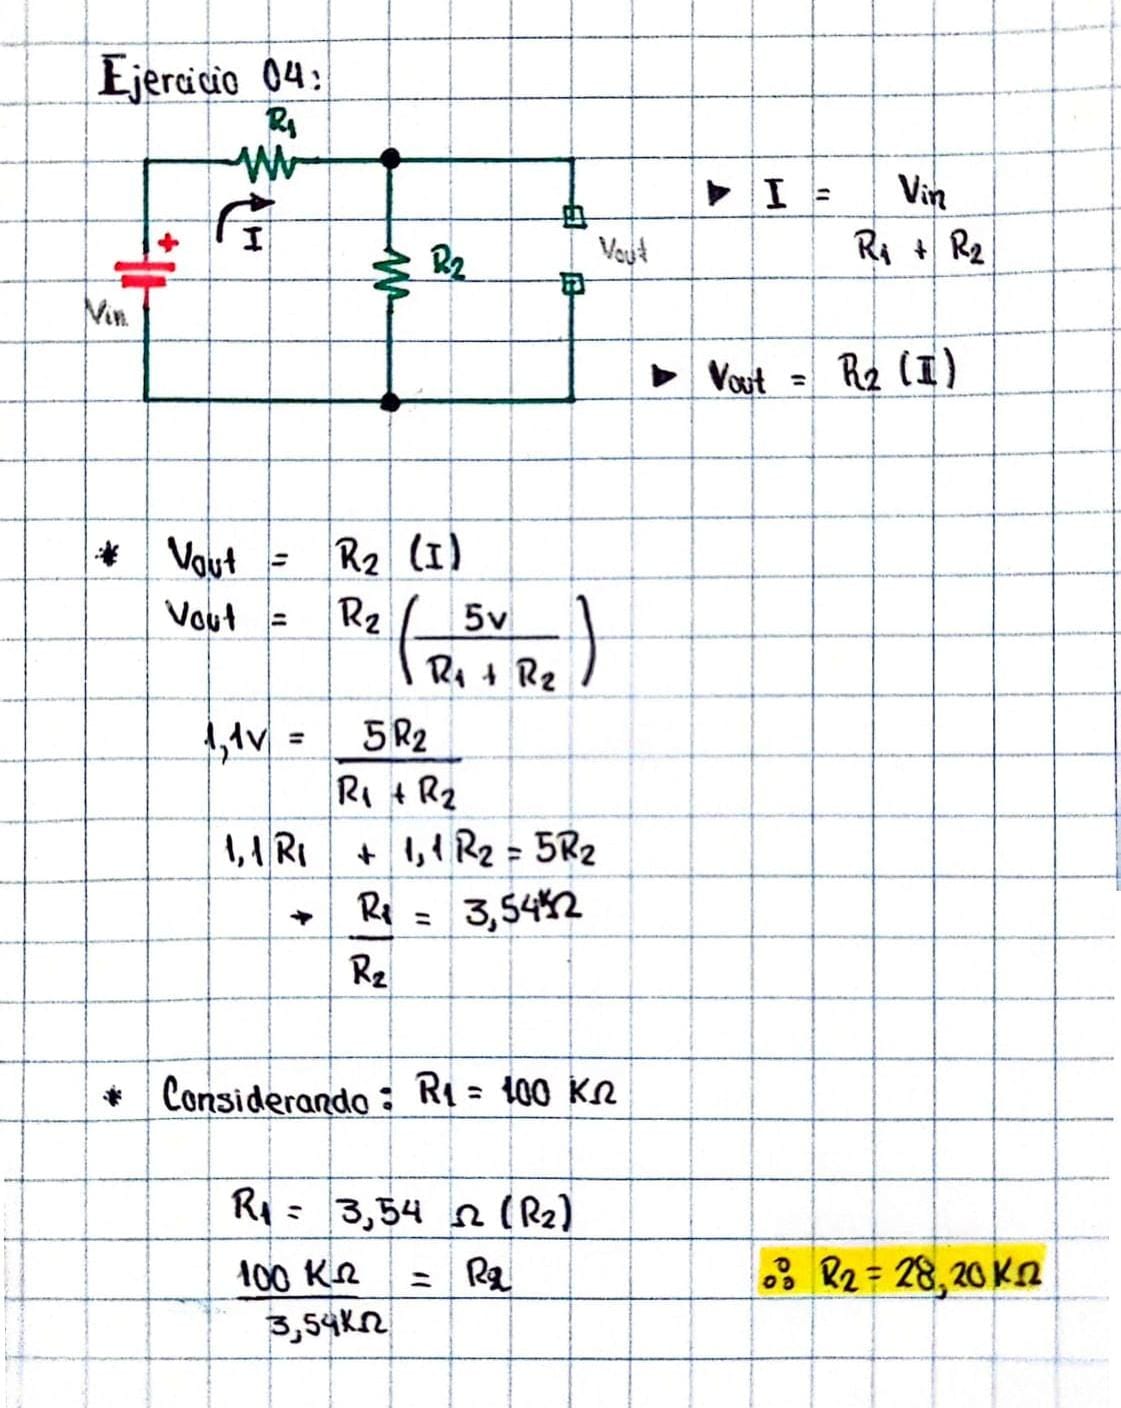 Ejercicio 04:
R1
I
+
Vin
R2
Vout
► I = Vin
R1 + R2
► Vout = R2 (I)
* Vout = R2 (I)
Vout = R2 ( 5v
R1 + R2 )
1,1v = 5R2
R1 + R2
1,1R1 + 1,1R2 = 5R2
→ R1 = 3,54KΩ
R2
* Considerando: R1 = 100 KΩ
R1 = 3,54 Ω (R2)
100 KΩ = R2
3,54KΩ
∴ R2 = 28,20 KΩ